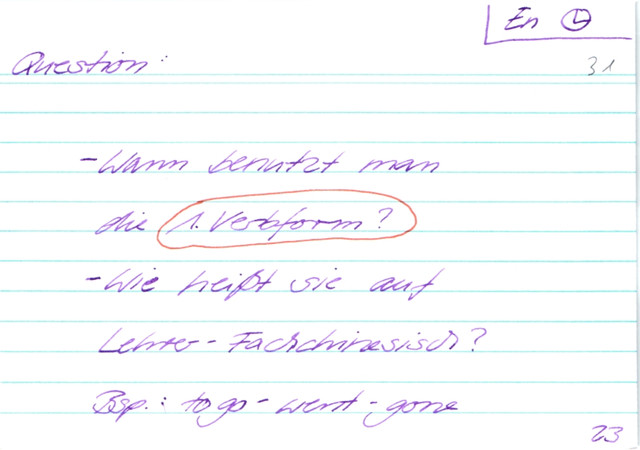 En
Question:
31
- Wann benutzt man
die 1. Verbform?
- Wie heißt sie auf
Lehrer-Fachchinesisch?
Bsp.: to go - went - gone
23